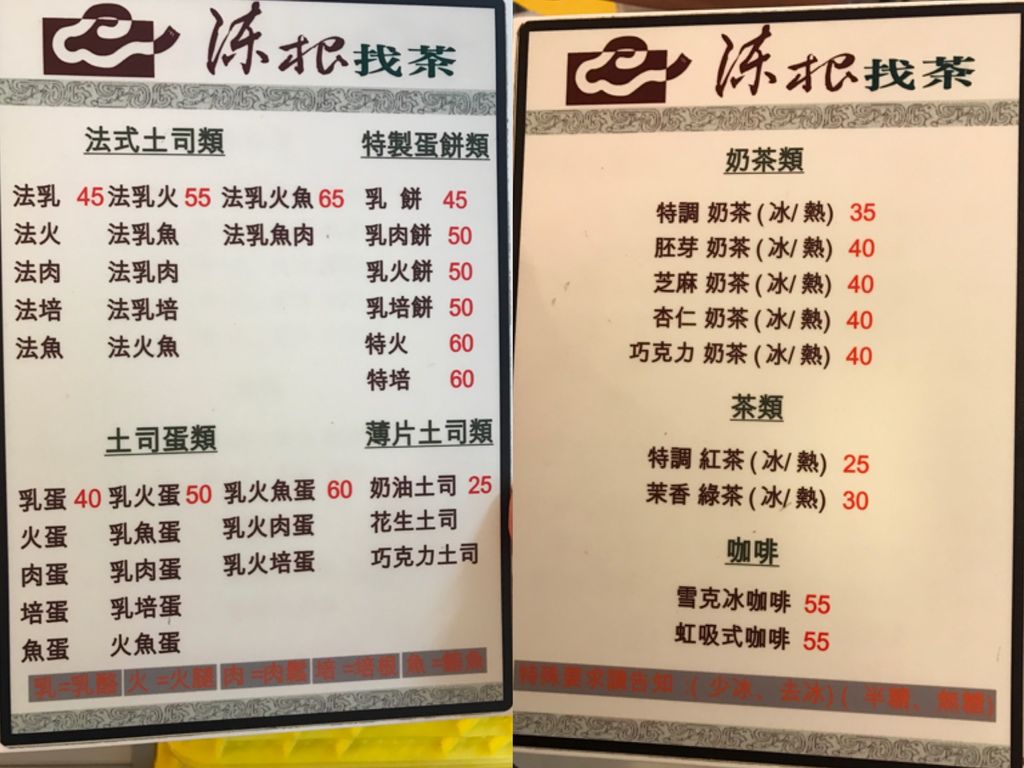 涷根找茶
法式土司類
法乳 45 法乳火 55 法乳火魚 65
法火 法乳魚 法乳魚肉
法肉 法乳肉
法培 法乳培
法魚 法火魚
特製蛋餅類
乳 餅 45
乳肉餅 50
乳火餅 50
乳培餅 50
特火 60
特培 60
土司蛋類
乳蛋 40 乳火蛋 50 乳火魚蛋 60
火蛋 乳魚蛋 乳火肉蛋
肉蛋 乳肉蛋 乳火培蛋
培蛋 乳培蛋
魚蛋 火魚蛋
薄片土司類
奶油土司 25
花生土司
巧克力土司
乳=乳酪 火=火腿 肉=肉鬆 培=培根 魚=鮪魚
涷根找茶
奶茶類
特調 奶茶(冰/熱) 35
胚芽 奶茶(冰/熱) 40
芝麻 奶茶(冰/熱) 40
杏仁 奶茶(冰/熱) 40
巧克力 奶茶(冰/熱) 40
茶類
特調 紅茶(冰/熱) 25
茉香 綠茶(冰/熱) 30
咖啡
雪克冰咖啡 55
虹吸式咖啡 55
特殊要求請告知 (少冰、去冰)(半糖、無糖)